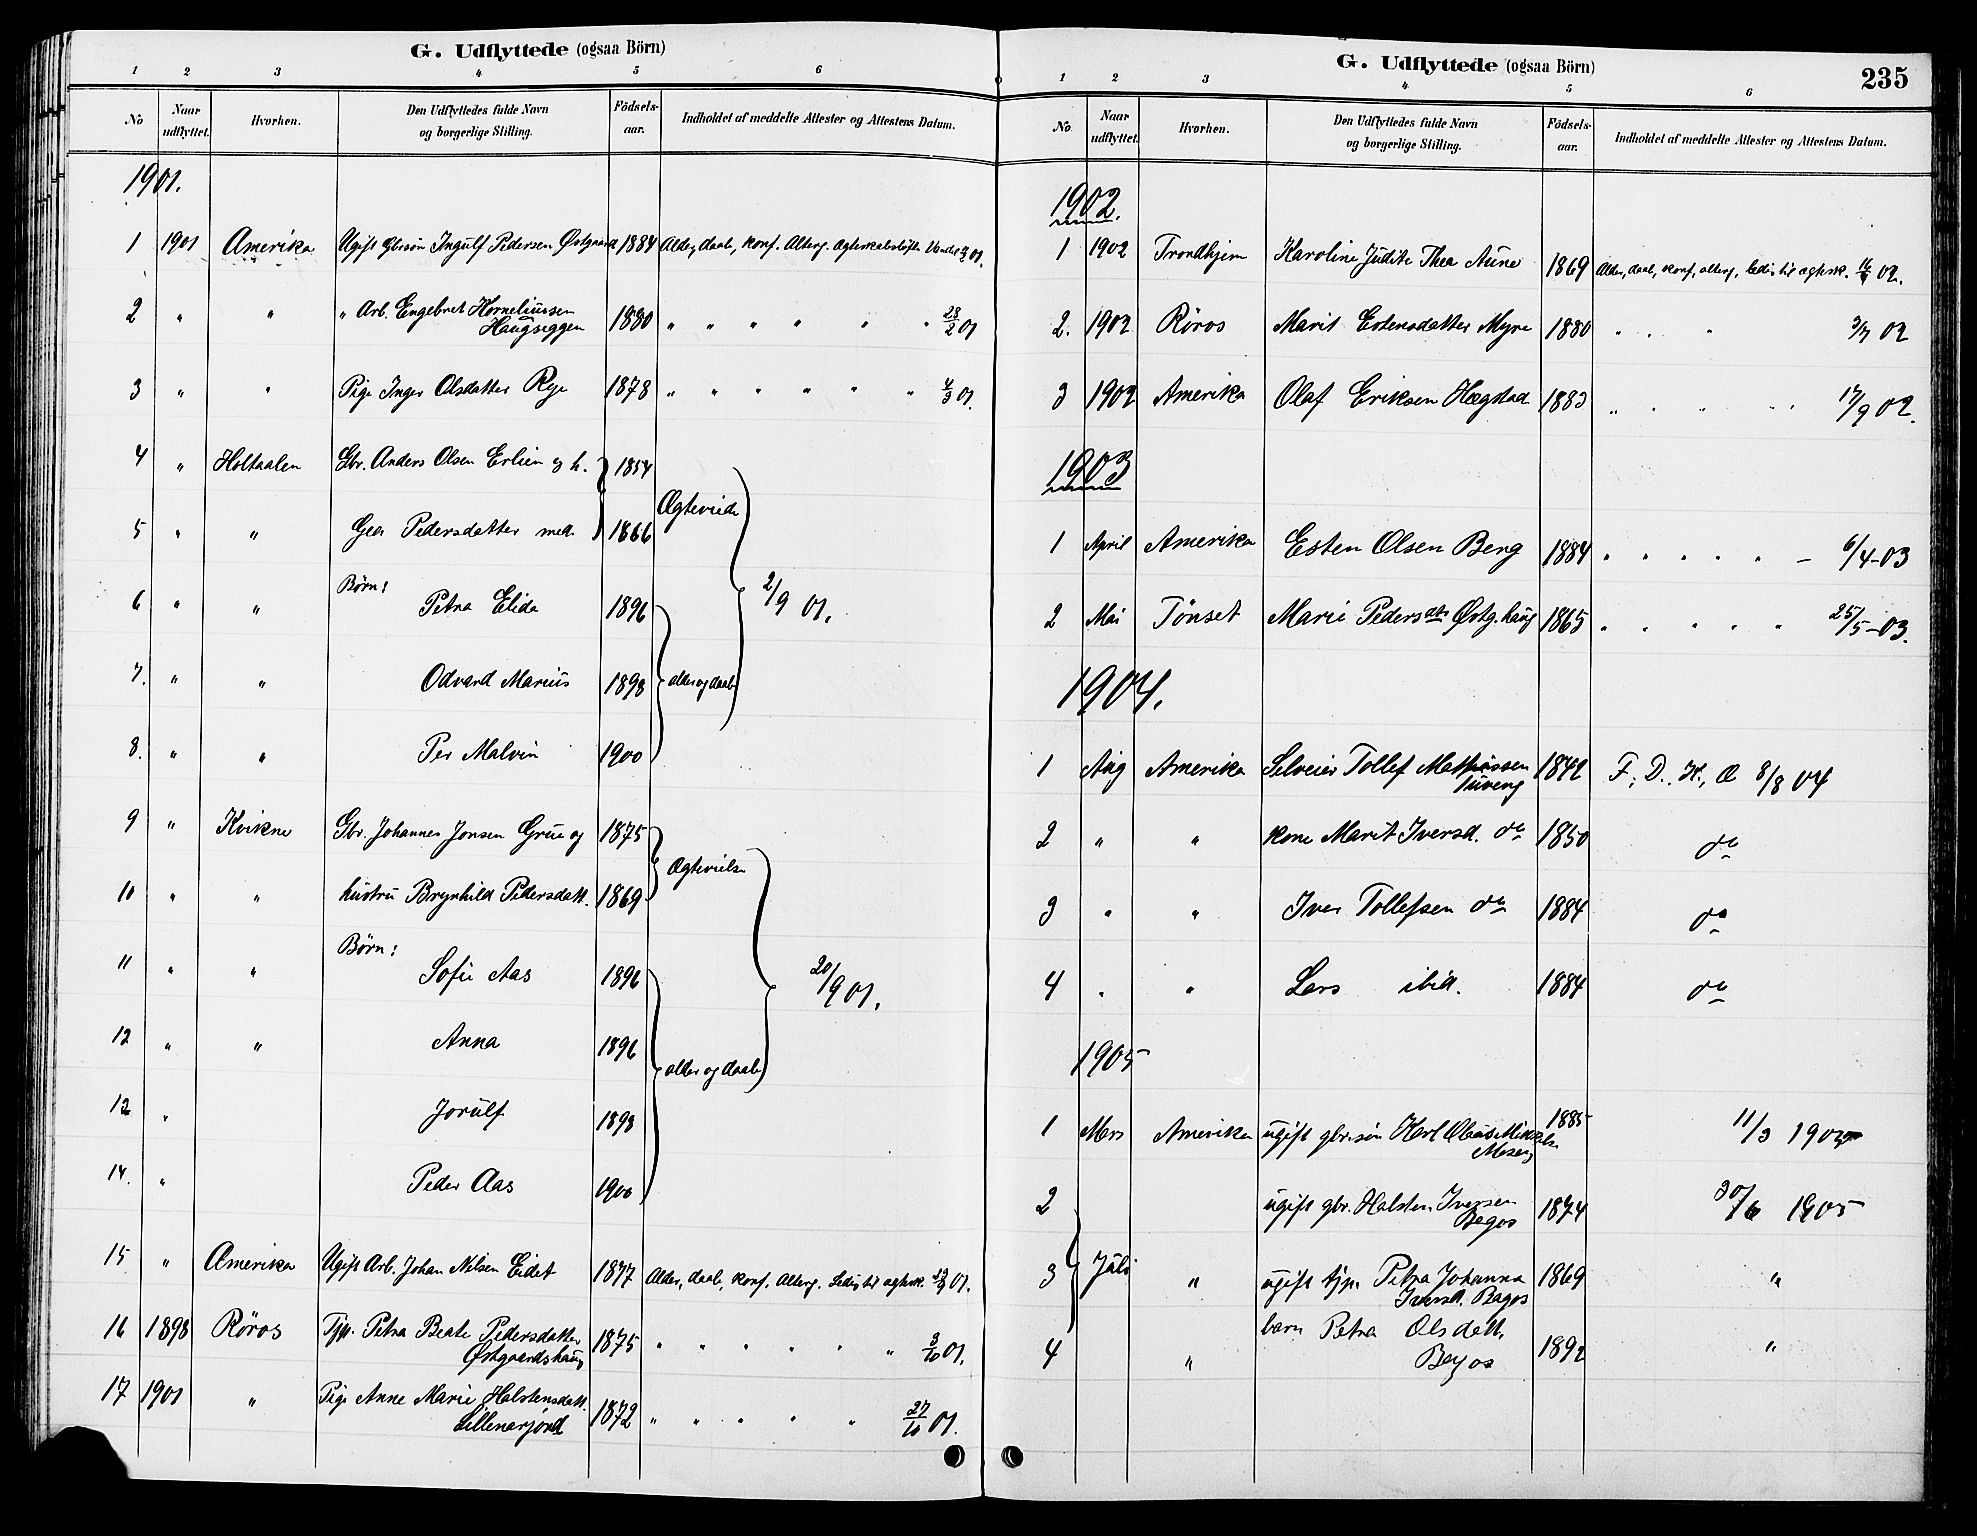 G. Udflyttede (ogsaa Börn)
1 2 3 4 5 6
No Naar udflyttet. Hvorhen. Den Udflyttedes fulde Navn og borgerlige Stilling. Födsels-aar. Indholdet af meddelte Attester og Attestens Datum.
1901.
1 1901 Amerika Ugift Gbrsön Ingulf Pedersen Østgaard 1884 Alder, daab, konf. Alterg. Ægteskabsløfte 01.
2 " " " Arb. Engebret Korneliussen Haugseggen 1880 " " " " " " 28/2 01
3 " " Pige Inger Olsdatter Rye 1878 " " " " " " 4/3 01.
4 " Holtaalen Gbr. Anders Olsen Erlien og h. 1854
Ægteviede
5 " " Gea Pedersdatter med 1866
6 " " Børn: Petra Elida 1896 2/9 01.
7. " " Odvard Marius 1898 alder og daab
8. " " Per Malvin 1900
9 " Kvikne Gbr. Johannes Jonsen Grue og 1875
Ægtevielse
10 " " hustru Brynhild Pedersdatt. 1869
11 " " Børn: Sofie Aas 1896 20/9 01.
12 " " Anna 1896
alder og daab
12 " Jorulf 1898
14. " Peder Aas 1900
15 " Amerika Ugift Arb. Johan Nilsen Eidet 1877 Alder, daab, konf. Alterg. Ledig til ægtesk. 01.
16 1898 Røros Tjp. Petra Beate Pedersdatter Østgaardshaug 1875 " " " " " " 3/10 01.
17 1901 " Pige Anne Marie Halstensdatt. Lillenarjord 1872 " " " " " 27/10 01.
G. Udflyttede (ogsaa Börn) 235
1 2 3 4 5 6
No Naar udflyttet. Hvorhen. Den Udflyttedes fulde Navn og borgerlige Stilling. Födsels-aar. Indholdet af meddelte Attester og Attestens Datum.
1902.
1 1902 Trondhjem Karoline Judite Thea Aune 1869 Alder, daab, konf, alterg, ledig til ægtesk. 02.
2. 1902 Røros Marit Estensdatter Myre 1880 " " " 3/7 02
3 1902 Amerika Olaf Eriksen Hægstad 1883 " " " " " 17/9 02.
1903
1 April Amerika Esten Olsen Berg 1884 " " " " " – 6/4-03
2 Mai Tönset Marie Pedersdtr Østg.haug 1865 " " " " " 25/5-03.
1904.
1 Aug Amerika Selveier Tollef Mathiassen Tuveng 1842 F, D. K, Æ 8/8 04
2 " " kone Marit Iversd. do 1850 do
3 " " Iver Tollefsen do 1884 do
4 " " Lars ibid. 1884 do
1905
1 Mars Amerika ugift gbrsøn Karl Olaus Mikkels. Moseng 1885 11/3 1905
2 ugift gbr. Halsten Iversen Begos 1874 30/6 1905
3 Juli " ugift tjp. Petra Johanna Iversd. Bagos 1869 "
4 " barn Petra Olsdatt. Begos 1892 "